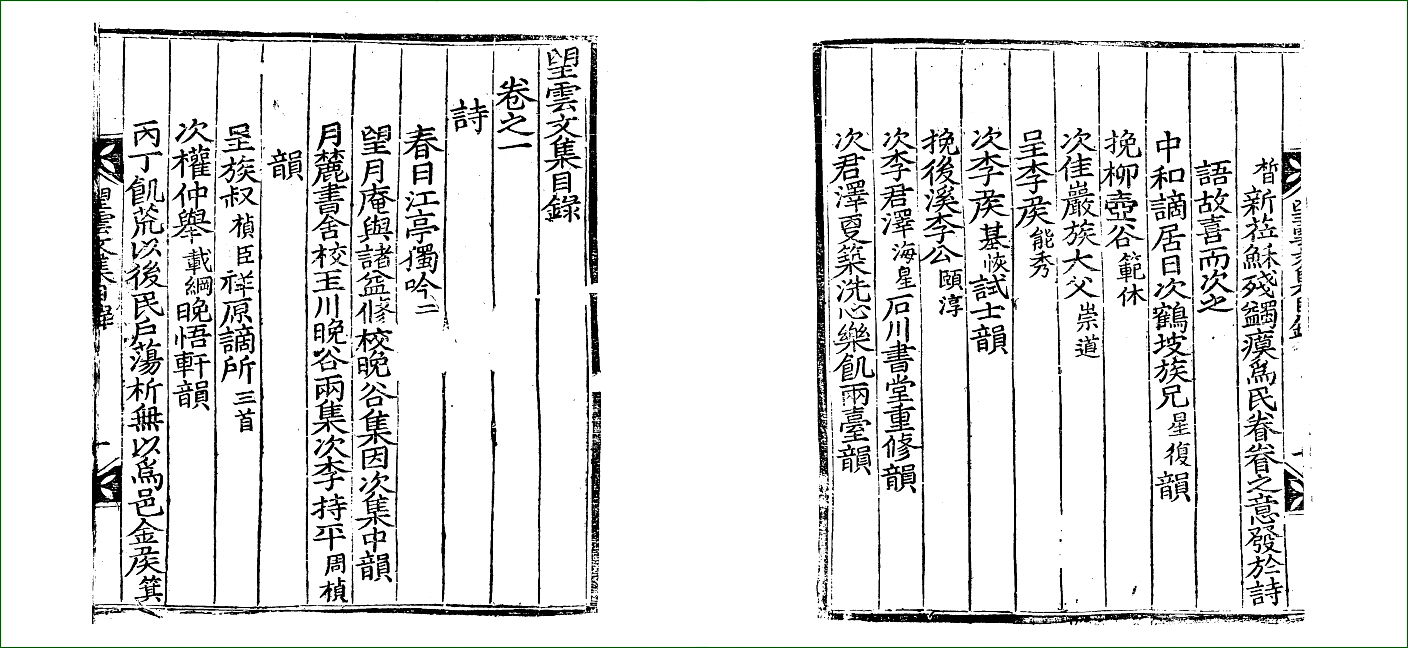 望雲文集目錄
卷之一
詩
春日江亭獨吟二
望月庵與諸益修校晩谷集因次集中韻
月麓書舍校玉川晩谷兩集次李持平周楨
韻
呈族叔楨臣祥原謫所三首
次權仲舉載綱晩悟軒韻
丙丁飢荒以後民戶蕩析無以爲邑金矦箕
望雲文集目錄 一
晳新莅穌殘蠲瘼爲民眷眷之意發於詩
語故喜而次之
中和謫居日次鶴坡族兄星復韻
挽柳壺谷範休
次佳巖族大父崇道
呈李矦能秀
次李矦基恢試士韻
挽後溪李公頤淳
次李君澤海星石川書堂重修韻
次君澤夏築洗心樂飢兩臺韻